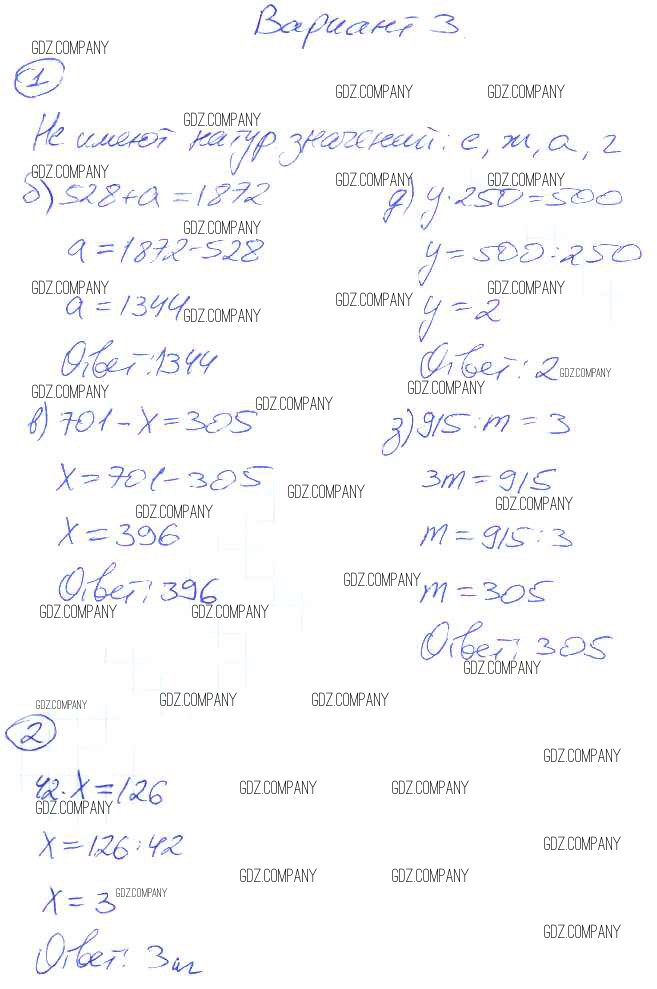 Вариант 3.
GDZ.COMPANY
1
GDZ.COMPANY GDZ.COMPANY
GDZ.COMPANY
Не имеют натур значений: е, ж, а, г
GDZ.COMPANY
GDZ.COMPANY GDZ.COMPANY
б) 528+a=1872
GDZ.COMPANY
a=1872-528
GDZ.COMPANY
a=1344
GDZ.COMPANY
Ответ: 1344
GDZ.COMPANY
GDZ.COMPANY
в) 701-x=305
x=701-305
GDZ.COMPANY
GDZ.COMPANY
x=396
Ответ: 396
GDZ.COMPANY GDZ.COMPANY
д) y·250=500
y=500:250
GDZ.COMPANY GDZ.COMPANY
y=2
Ответ: 2
GDZ.COMPANY
GDZ.COMPANY
з) 915:m=3
3m=915
GDZ.COMPANY
m=915:3
GDZ.COMPANY
m=305
Ответ: 305
GDZ.COMPANY
GDZ.COMPANY GDZ.COMPANY GDZ.COMPANY
2
GDZ.COMPANY
42·x=126
GDZ.COMPANY GDZ.COMPANY
GDZ.COMPANY
x=126:42
GDZ.COMPANY
GDZ.COMPANY GDZ.COMPANY
x=3
GDZ.COMPANY
GDZ.COMPANY
Ответ: 3 кг